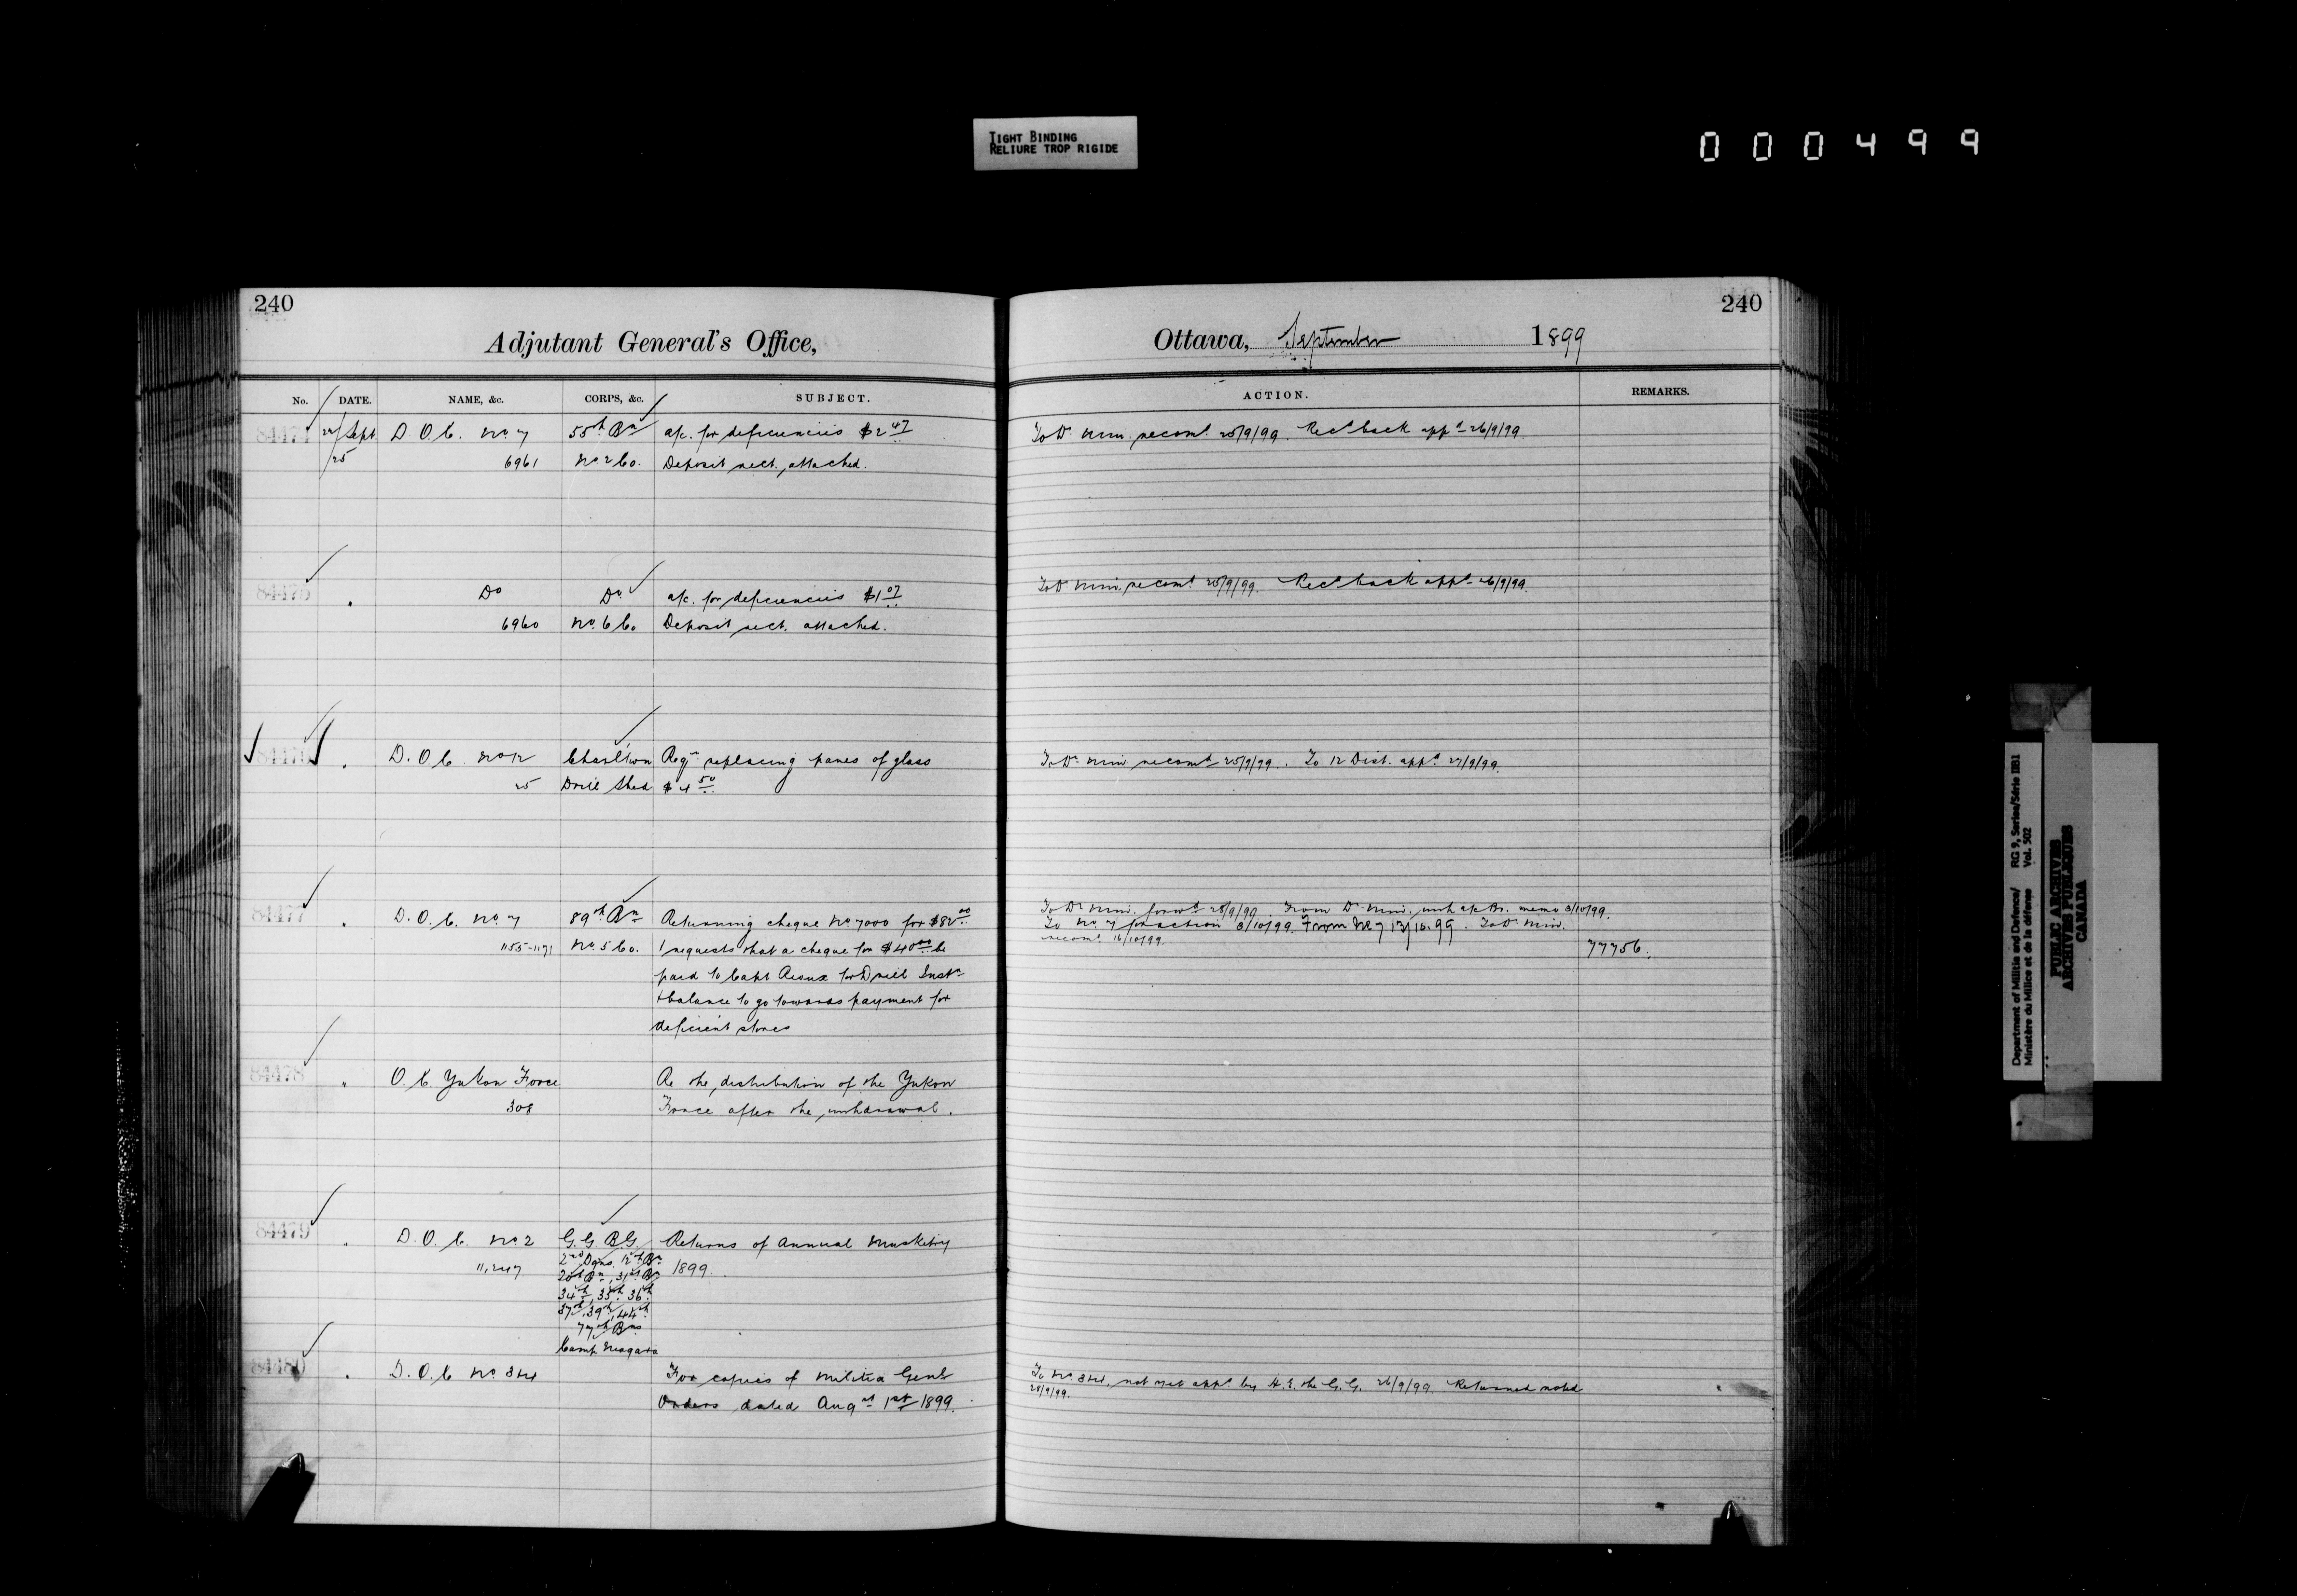 TIGHT BINDING
RELIURE TROP RIGIDE
000499
240
Adjutant General's Office,
No. DATE. NAME, &c. CORPS, &c. SUBJECT.
84474 Sept D.O.C. No 7 55th Bn a/c. for deficiencies $2 47
25 6961 No. 2 Co. Deposit rect. attached.
84475 " Do Do a/c. for deficiencies $1 07
6960 No. 6 Co. Deposit rect. attached.
84476 " D.O.C. No 12 Charl'town Reqn replacing panes of glass
25 Drill Shed $4 50
84477 " D.O.C. No. 7 89th Bn Returning cheque No 7000 for $82 00
1155-1171 No. 5 Co. & requests that a cheque for $40 00 be
paid to Capt for Drill Instn
& balance to go towards payment for
deficient stores
84478 " O.C. Yukon Force Re the distribution of the Yukon
308 Force after the withdrawal.
84479 " D.O.C. No 2 G.G.B.G. Returns of Annual Musketry
11,247 2nd Dgns, 12th Bn 1899.
20th Bn, 31st Bn
34th, 35th, 36th
37th, 39th, 44th
77th Bns
Camp Niagara
84480 " D.O.C. No 3&4 For copies of Militia Genl
Orders dated Augst 1st 1899.
240
Ottawa, September 1899
ACTION. REMARKS.
To Dr Min. recomd 25/9/99. Recd back appd 26/9/99.
To Dr Min. recomd 25/9/99. Recd back appd 26/9/99.
To Dr Min recomd 25/9/99. To 12 Dist. appd 27/9/99.
To Dr Min. forwd 28/9/99 From Dr Min. with a/c Br. memo 3/10/99.
To No 7 for action 3/10/99. From No 7 13/10.99. To Dr Min.
recomd 16/10/99.
77756.
To No 3&4, not yet appd by H.E. the G.G. 26/9/99 Returned noted
28/9/99.
Department of Militia and Defence/ RG 9, Series/Série IIB1
Ministère du Milice et de la défense Vol. 502
PUBLIC ARCHIVES
ARCHIVES PUBLIQUES
CANADA